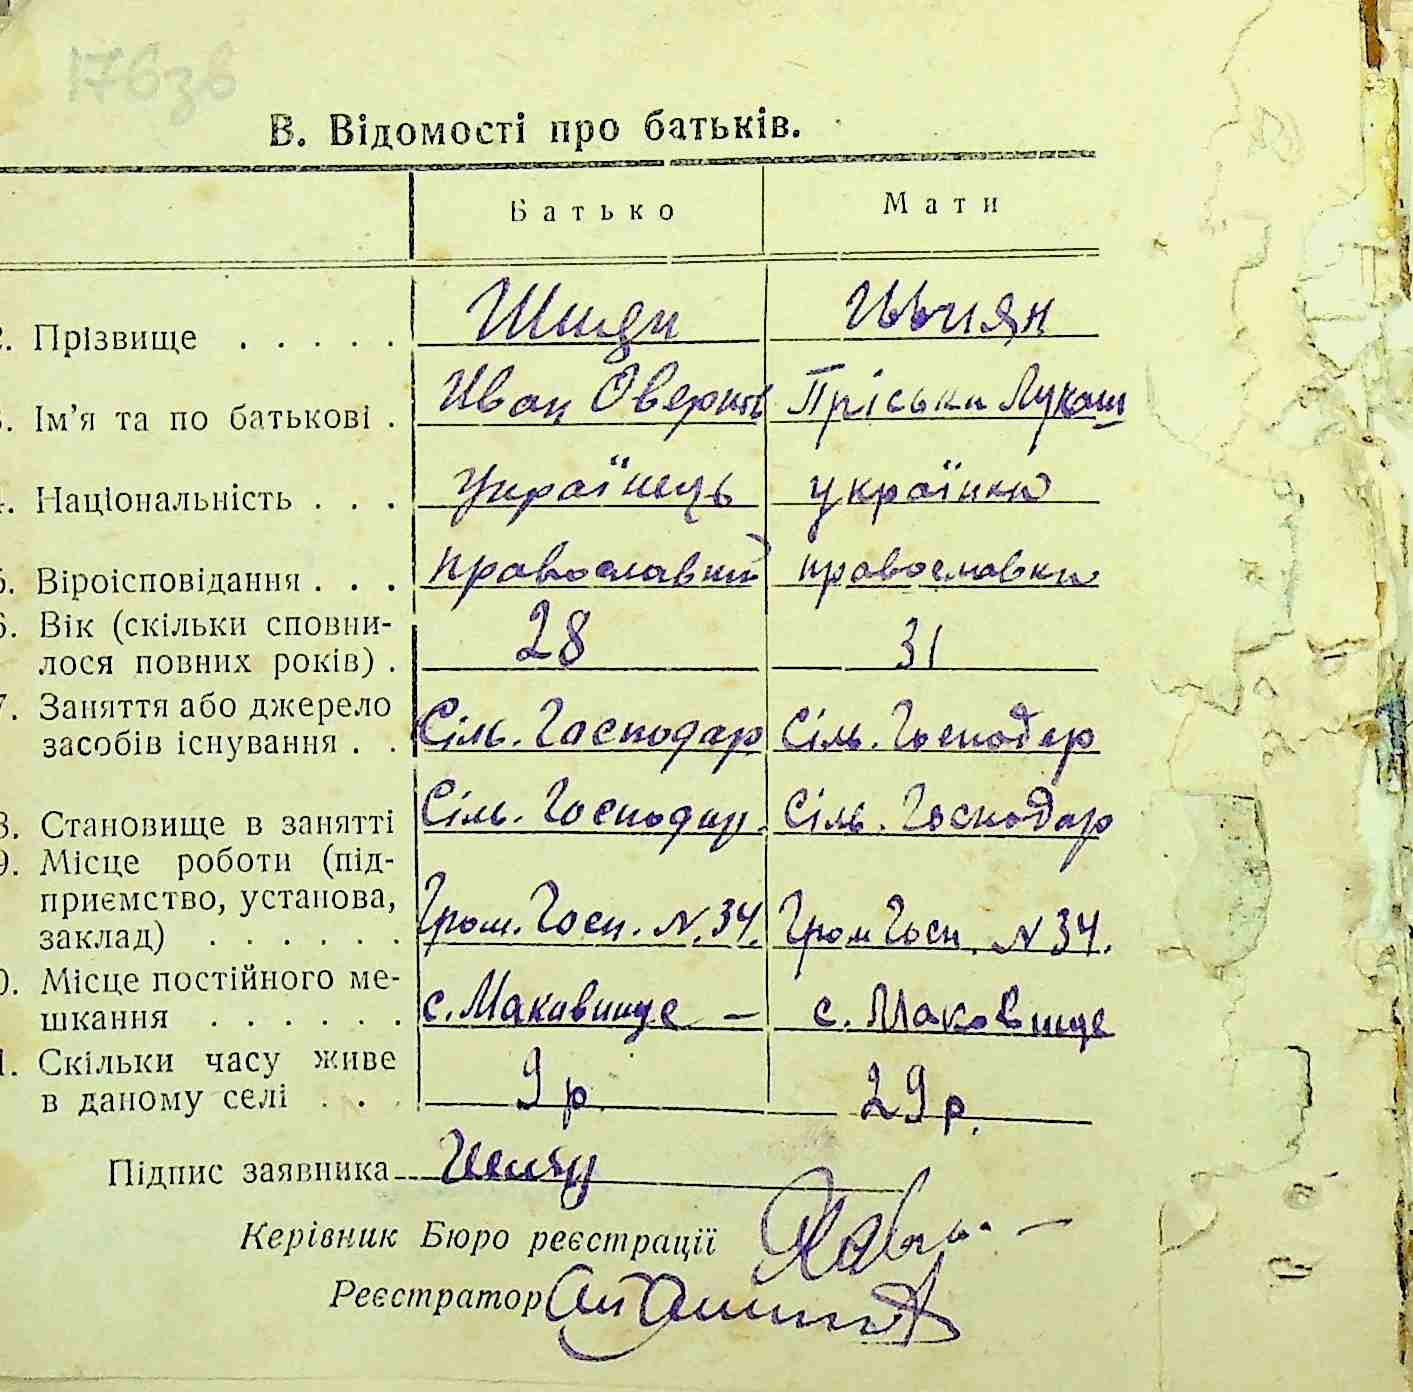 176зв
В. Відомості про батьків.
Батько Мати
2. Прізвище . . . . .
3. Ім'я та по батькові . Иван Оверков Пріська Лукаш
4. Національність . . . Українець українка
5. Віроісповідання . . . православний православна
6. Вік (скільки сповни-
лося повних років) . 28 31
7. Заняття або джерело
засобів існування . . Сіль. Господар Сіль. Господар
8. Становище в занятті Сіль. Господар. Сіль. Господар
9. Місце роботи (під-
приємство, установа,
заклад) . . . . . . Гром. Госп. N. 34. Гром Госп. N 34.
0. Місце постійного ме-
шкання . . . . . . с. Маковище – с. Маковище
1. Скільки часу живе
в даному селі . . . 9 р 29 р.
Підпис заявника
Керівник Бюро реєстрації
Реєстратор